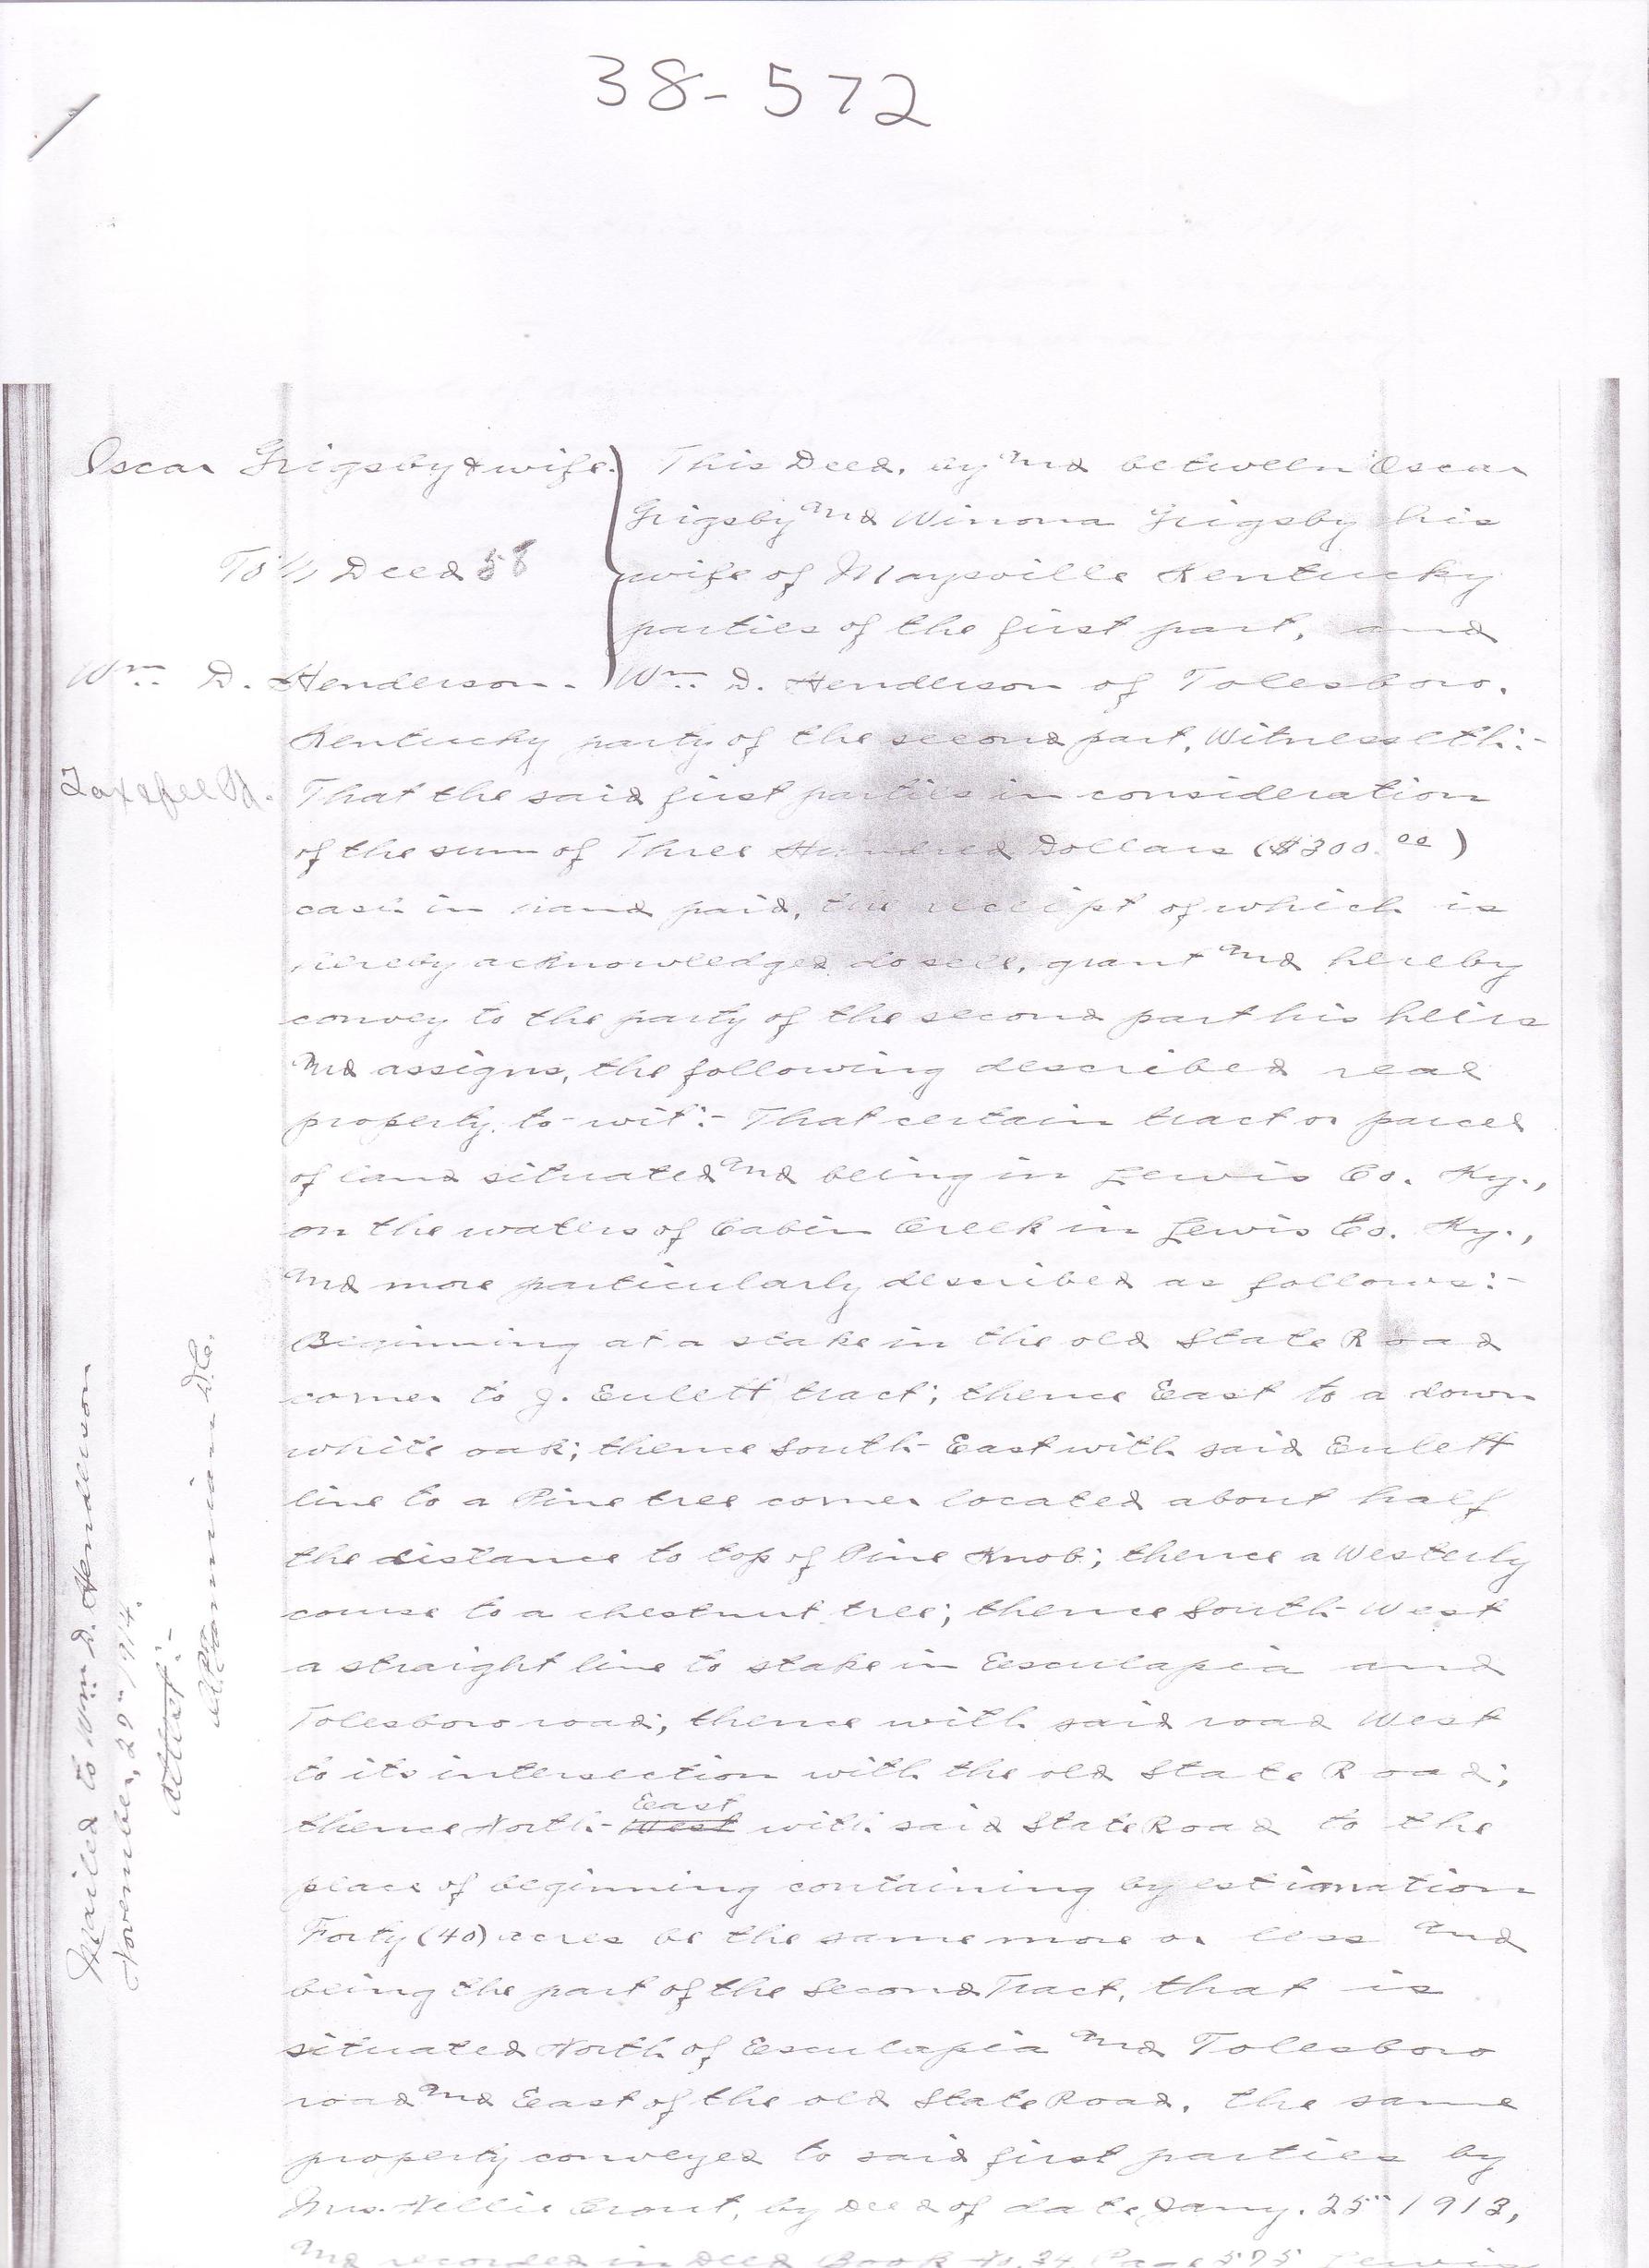 38-572
Oscar Grigsby & wife.
To // Deed 58
Wm. D. Henderson.
Tax & fee Pd.
This Deed, by and between Oscar
Grigsby and Winona Grigsby his
wife of Maysville Kentucky
parties of the first part, and
Wm. D. Henderson of Tolesboro.
Kentucky party of the second part, Witnesseth:-
That the said first parties in consideration
of the sum of Three Hundred Dollars ($300.00)
cash in hand paid, the receipt of which is
hereby acknowledged do sell, grant and hereby
convey to the party of the second part his heirs
and assigns, the following described real
property, to-wit:- That certain tract or parcel
of land situated and being in Lewis Co. Ky.,
on the waters of Cabin Creek in Lewis Co. Ky.,
and more particularly described as follows:-
Beginning at a stake in the old State Road
corner to J. Eulett tract; thence East to a down
white oak; thence South-East with said Eulett
line to a Pine tree corner located about half
the distance to top of Pine Knob; thence a Westerly
course to a chestnut tree; thence South-West
a straight line to stake in Esculapia and
Tolesboro road; thence with said road West
to its intersection with the old State Road;
thence North-West East with said State Road to the
place of beginning containing by estimation
Forty (40) acres be the same more or less and
being the part of the Second Tract, that is
situated North of Esculapia and Tolesboro
road and East of the old State Road. the same
property conveyed to said first parties by
Mrs. Nellie Crout, by Deed of date Jany. 25" 1913,
and recorded in Deed Book No. 34 Page 575 Lewis
Mailed to Wm. D. Henderson
November, 29" 1914.
Attest:-
D.C.